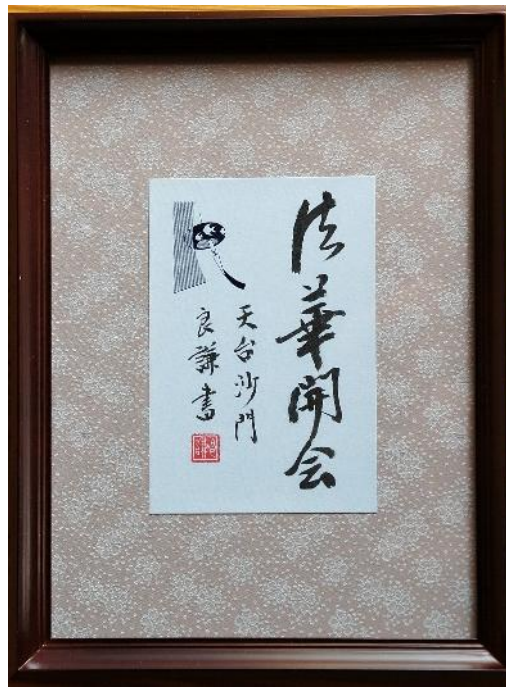 法華開会
天台沙門
良謙書